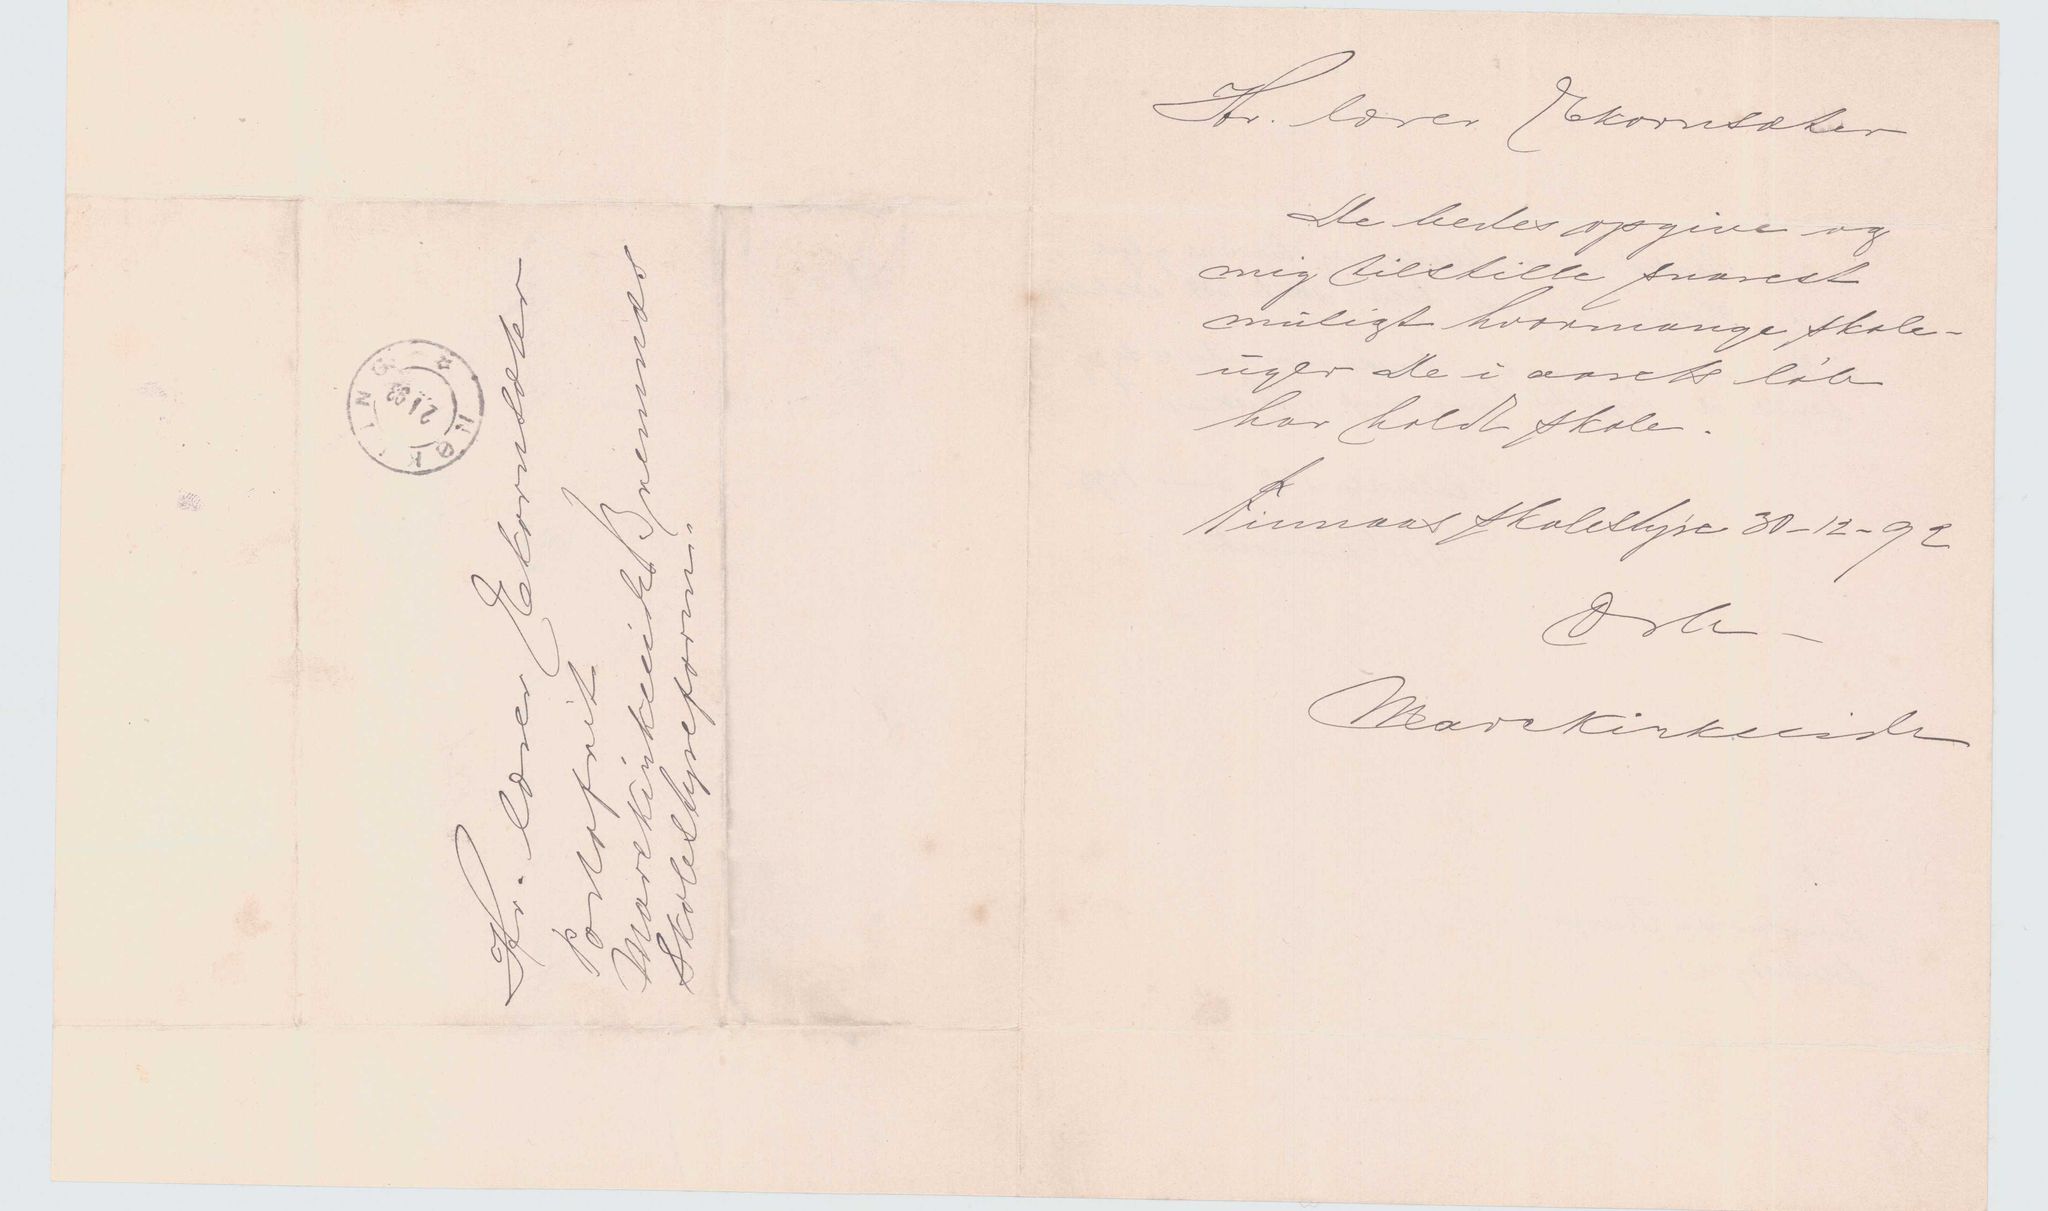 Hr. lærer Ekornsæter
Portofrit.
Marekirkeeide Bremnæs
Skolestyreform:
HØKLING
2 1 93
Hr. lærer Ekornsæter
De bedes opgive og
mig tilstille snarest
muligt hvormange skole-
uger De i aarets løb
har holdt skole.
Finnaas skolestyre 30-12-92
Ærb-